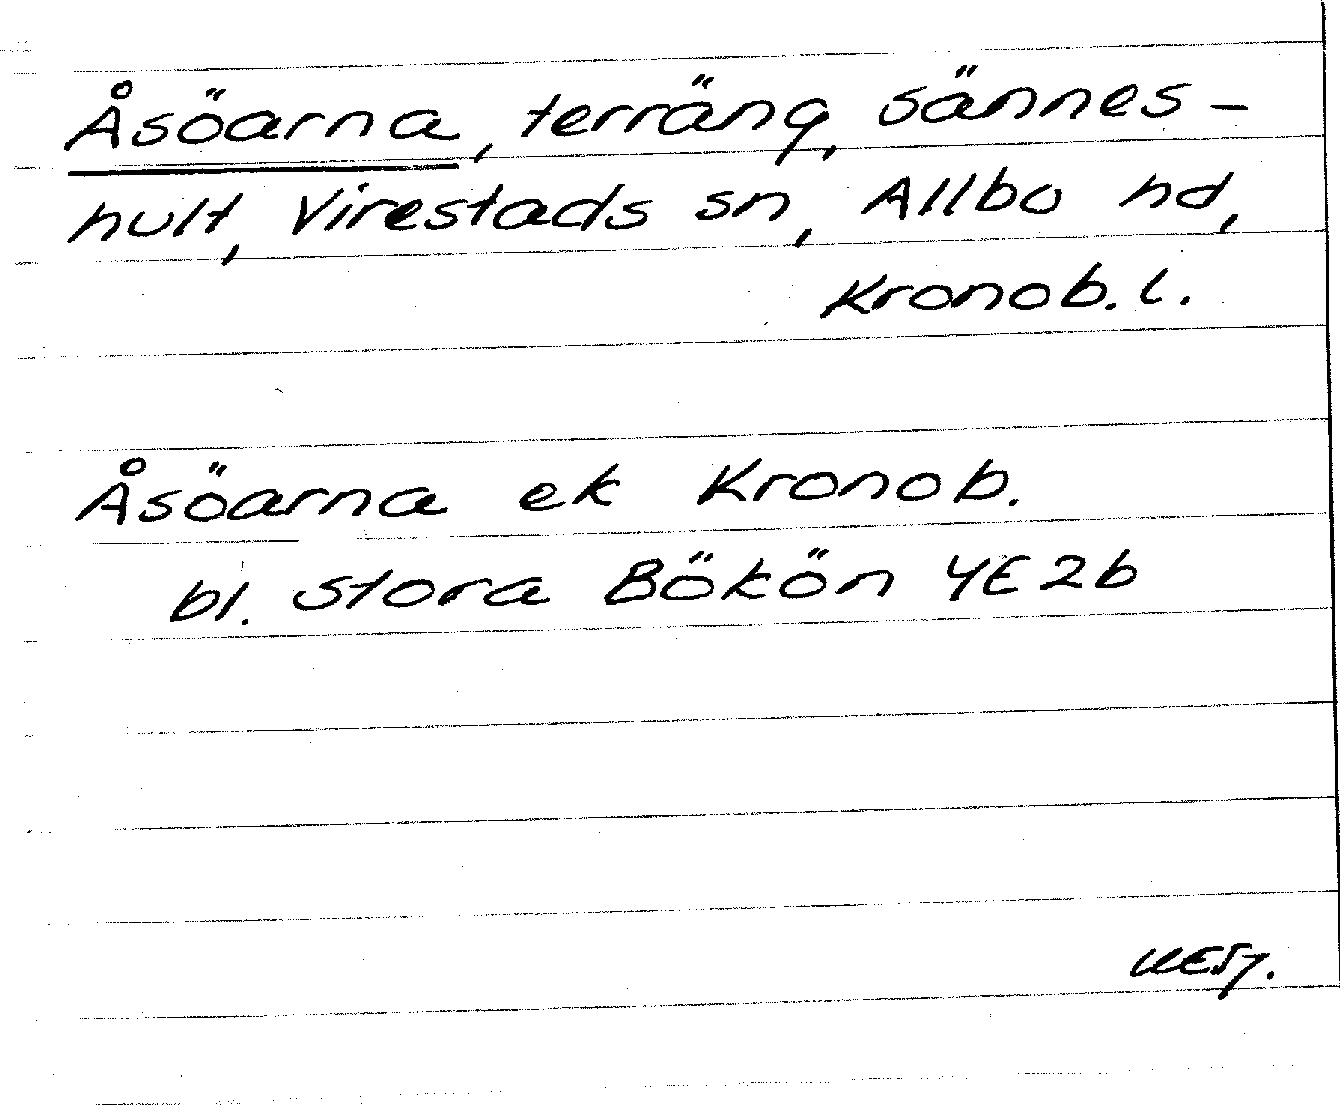 Åsöarna, terräng, Sännes-
hult, Virestads sn, Allbo hd,
Kronob. l.
Åsöarna ek Kronob.
bl. Stora Bökön 4E2b